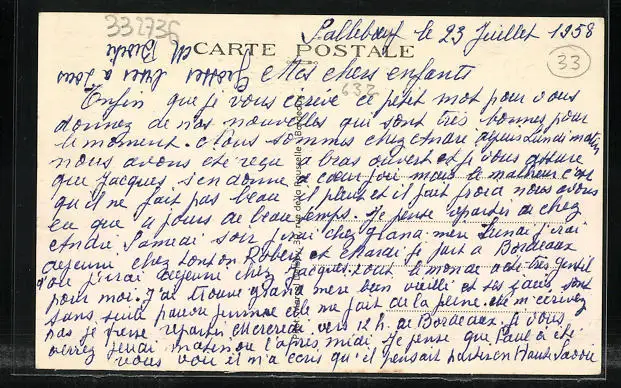 332736
Sallebœuf le 23 Juillet 1958
CARTE POSTALE
33
Grosses bises à tous
Mes chers enfants
632
Enfin que je vous écrive ce petit mot pour vous
donnez de nos nouvelles qui sont très bonnes pour
le moment. Nous sommes chez André depuis Lundi matin
nous avons été reçu a bras ouvert et je vous assure
que Jacques s'en donne a cœur joie mais le malheur c'est
qu'il ne fait pas beau il pleut et il fait froid nous avons
eu que 2 jours de beau temps. Je pense repartir de chez
André Samedi soir jerai chez grand mère Lundi j'irai
déjeuné chez Robert et Mardi je part a Bordeaux
d'où j'irai déjeuné chez Jacques. tout le monde a été très gentil
pour moi. J'ai trouvé grand mère bien vieilli et ses jambes sont
sans suite pauvre femme elle me fait de la peine. ne m'écrivez
pas je pense repartir Mercredi vers 12 h. de Bordeaux. Je vous
verrez Jeudi matin ou l'après midi. Je pense que Paul a été
vous voir il m'a écris qu'il pensait partir en Haute Savoie